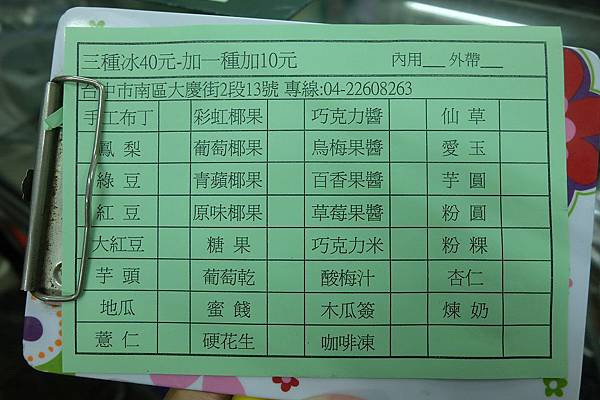 三種冰40元-加一種加10元 內用__ 外帶__
台中市南區大慶街2段13號 專線:04-22608263
手工布丁 彩虹椰果 巧克力醬 仙草
鳳梨 葡萄椰果 烏梅果醬 愛玉
綠豆 青蘋椰果 百香果醬 芋圓
紅豆 原味椰果 草莓果醬 粉圓
大紅豆 糖果 巧克力米 粉粿
芋頭 葡萄乾 酸梅汁 杏仁
地瓜 蜜餞 木瓜簽 煉奶
薏仁 硬花生 咖啡凍